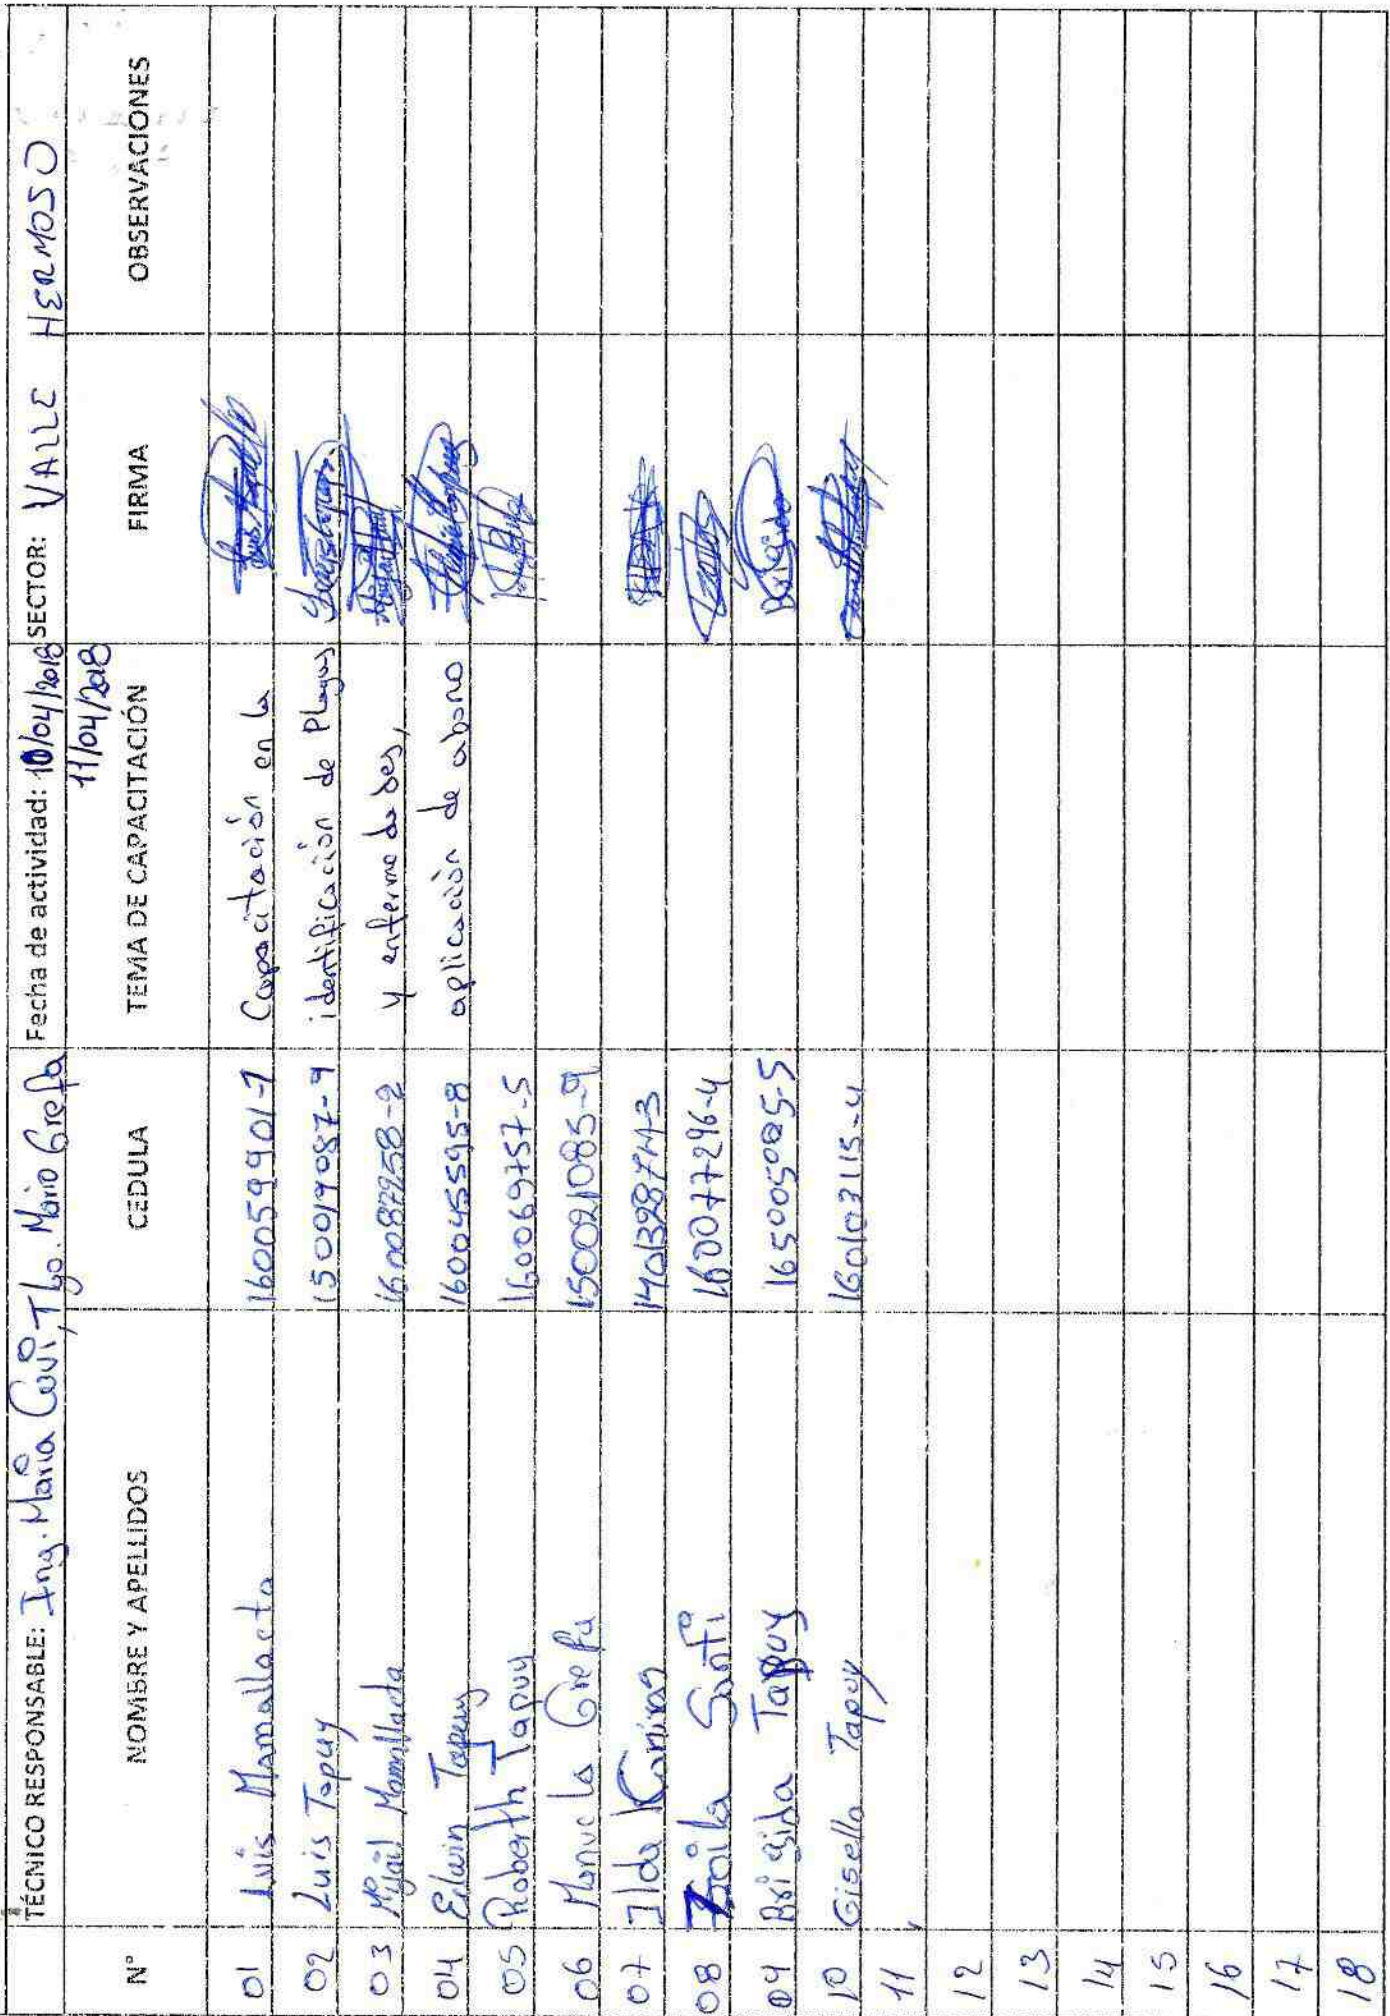 TÉCNICO RESPONSABLE: Ing. María Cuvi, Tlgo. Mario Grefa Fecha de actividad: 10/04/2018 SECTOR: VALLE HERMOSO
11/04/2018
N° NOMBRE Y APELLIDOS CEDULA TEMA DE CAPACITACIÓN FIRMA OBSERVACIONES
01 Luis Mamallacta 160059901-7 Capacitación en la
02 Luis Tapuy 150019087-9 identificación de Plagas
03 Mamallacta y enfermedades,
04 Edwin Tapuy 160045595-8 aplicación de abono
05 Roberth Tapuy 160069757-5
06 Manuela Grefa 150021085-9
07 Ilda
08 Zoila Santi 160077296-4
09 Brigida Tapuy 165005005-5 Brigida
10 Gisella Tapuy 160103115-4
11
12
13
14
15
16
17
18